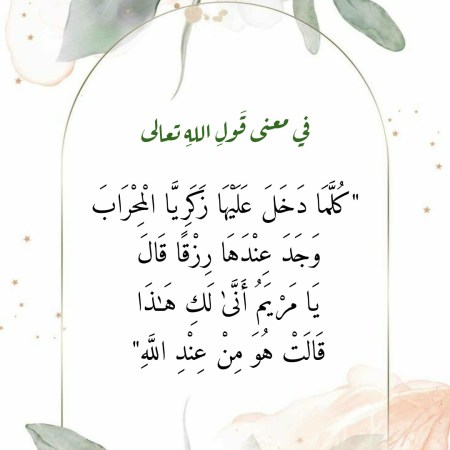 في معنى قَولِ اللهِ تعالى
"كُلَّمَا دَخَلَ عَلَيْهَا زَكَرِيَّا الْمِحْرَابَ
وَجَدَ عِنْدَهَا رِزْقًا قَالَ
يَا مَرْيَمُ أَنَّىٰ لَكِ هَـٰذَا
قَالَتْ هُوَ مِنْ عِنْدِ اللَّهِ"